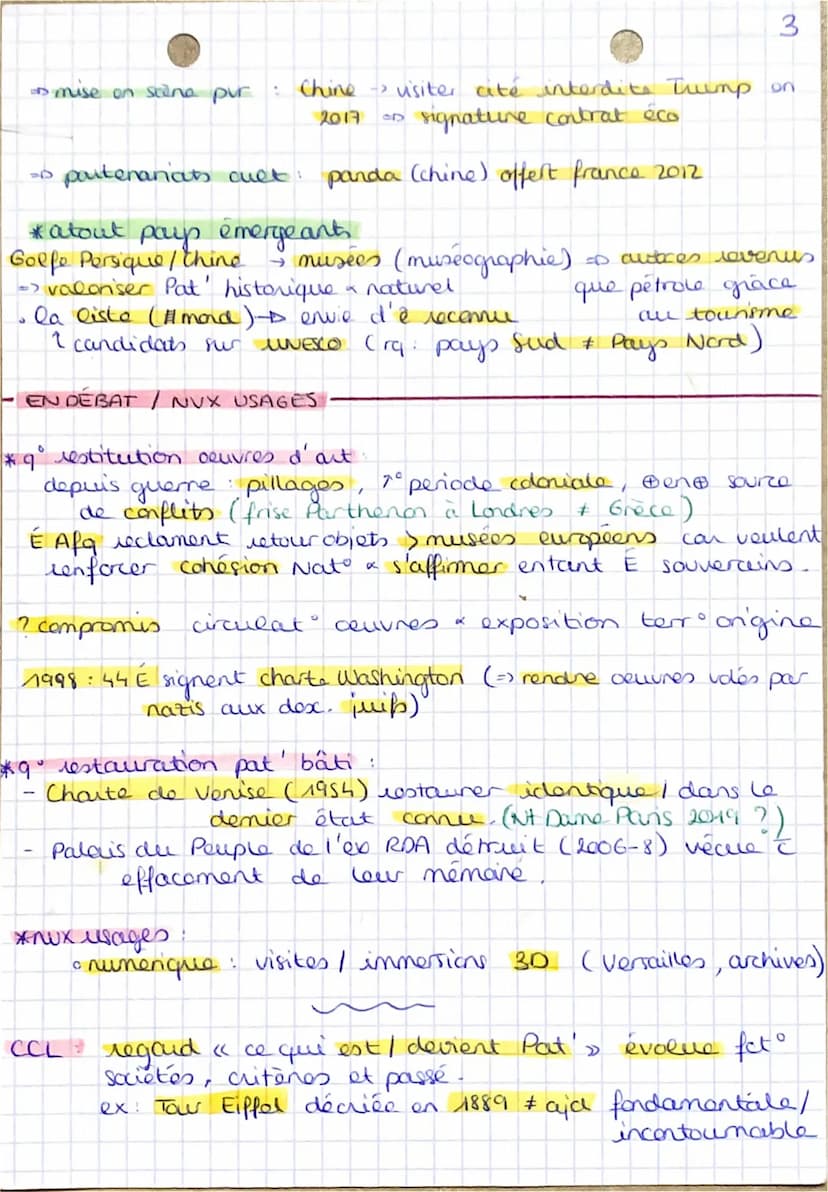 3
=> mise en scène pvr : Chine -> visite cité interdite Trump en
2017 => signature contrat éco
=> partenariats cuet : panda (chine) offert france 2012
*atout pays émergeants
Golfe Persique/Chine → musées (muséographie) => autres revenus
=> valoriser Pat' historique & naturel que pétrole grâce
• la liste (#mond) → envie d'ê reconnu au tourisme
? candidats sur UNESCO (rq : pays Sud ≠ Pays Nord)
EN DÉBAT / NVX USAGES
*q° restitution oeuvres d'art :
depuis guerre : pillages, ↗° periode coloniale, ⊕en⊕ source
de conflits (frise Parthénon à Londres ≠ Grèce)
É Afq réclament retour objets > musées européens car veulent
renforcer cohésion Nat° & s'affirmer entant É souverains.
? compromis circulat° oeuvres & exposition terr° origine
1998 : 44 É signent charte Washington (=> rendre oeuvres volés par
nazis aux dex. juifs)
*q° restauration pat' bâti :
- Charte de Venise (1954) restaurer identique / dans le
dernier état connu. (Nt Dame Paris 2019 ?)
- Palais du Peuple de l'ex RDA détruit (2006-8) vécue c̄
effacement de leur mémoire.
*nvx usages :
◦ numérique : visites / immersions 3D (Versailles, archives)
CCL : regard « ce qui est / devient Pat' » évolue fct°
sociétés, critères et passé.
ex : Tour Eiffel décriée en 1889 ≠ ajd fondamentale /
incontournable